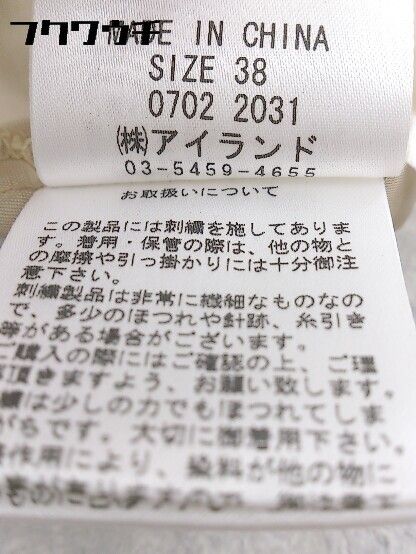 フクウカチ
MADE IN CHINA
SIZE 38
0702 2031
㈱アイランド
03-5459-4655
お取扱いについて
この製品には刺繍を施してありま
す。着用・保管の際は、他の物と
の摩擦や引っ掛かりには十分御注
意下さい。
刺繍製品は非常に繊細なものなの
で、多少のほつれや針跡、糸引き
等がある場合がございます。
ご購入の際にはご確認の上、ご理
頂きますよう、お願い致します。
繍は少しの力でもほつれてしま
がらです。大切に御着用下さい。
作用により、染料が他の物に